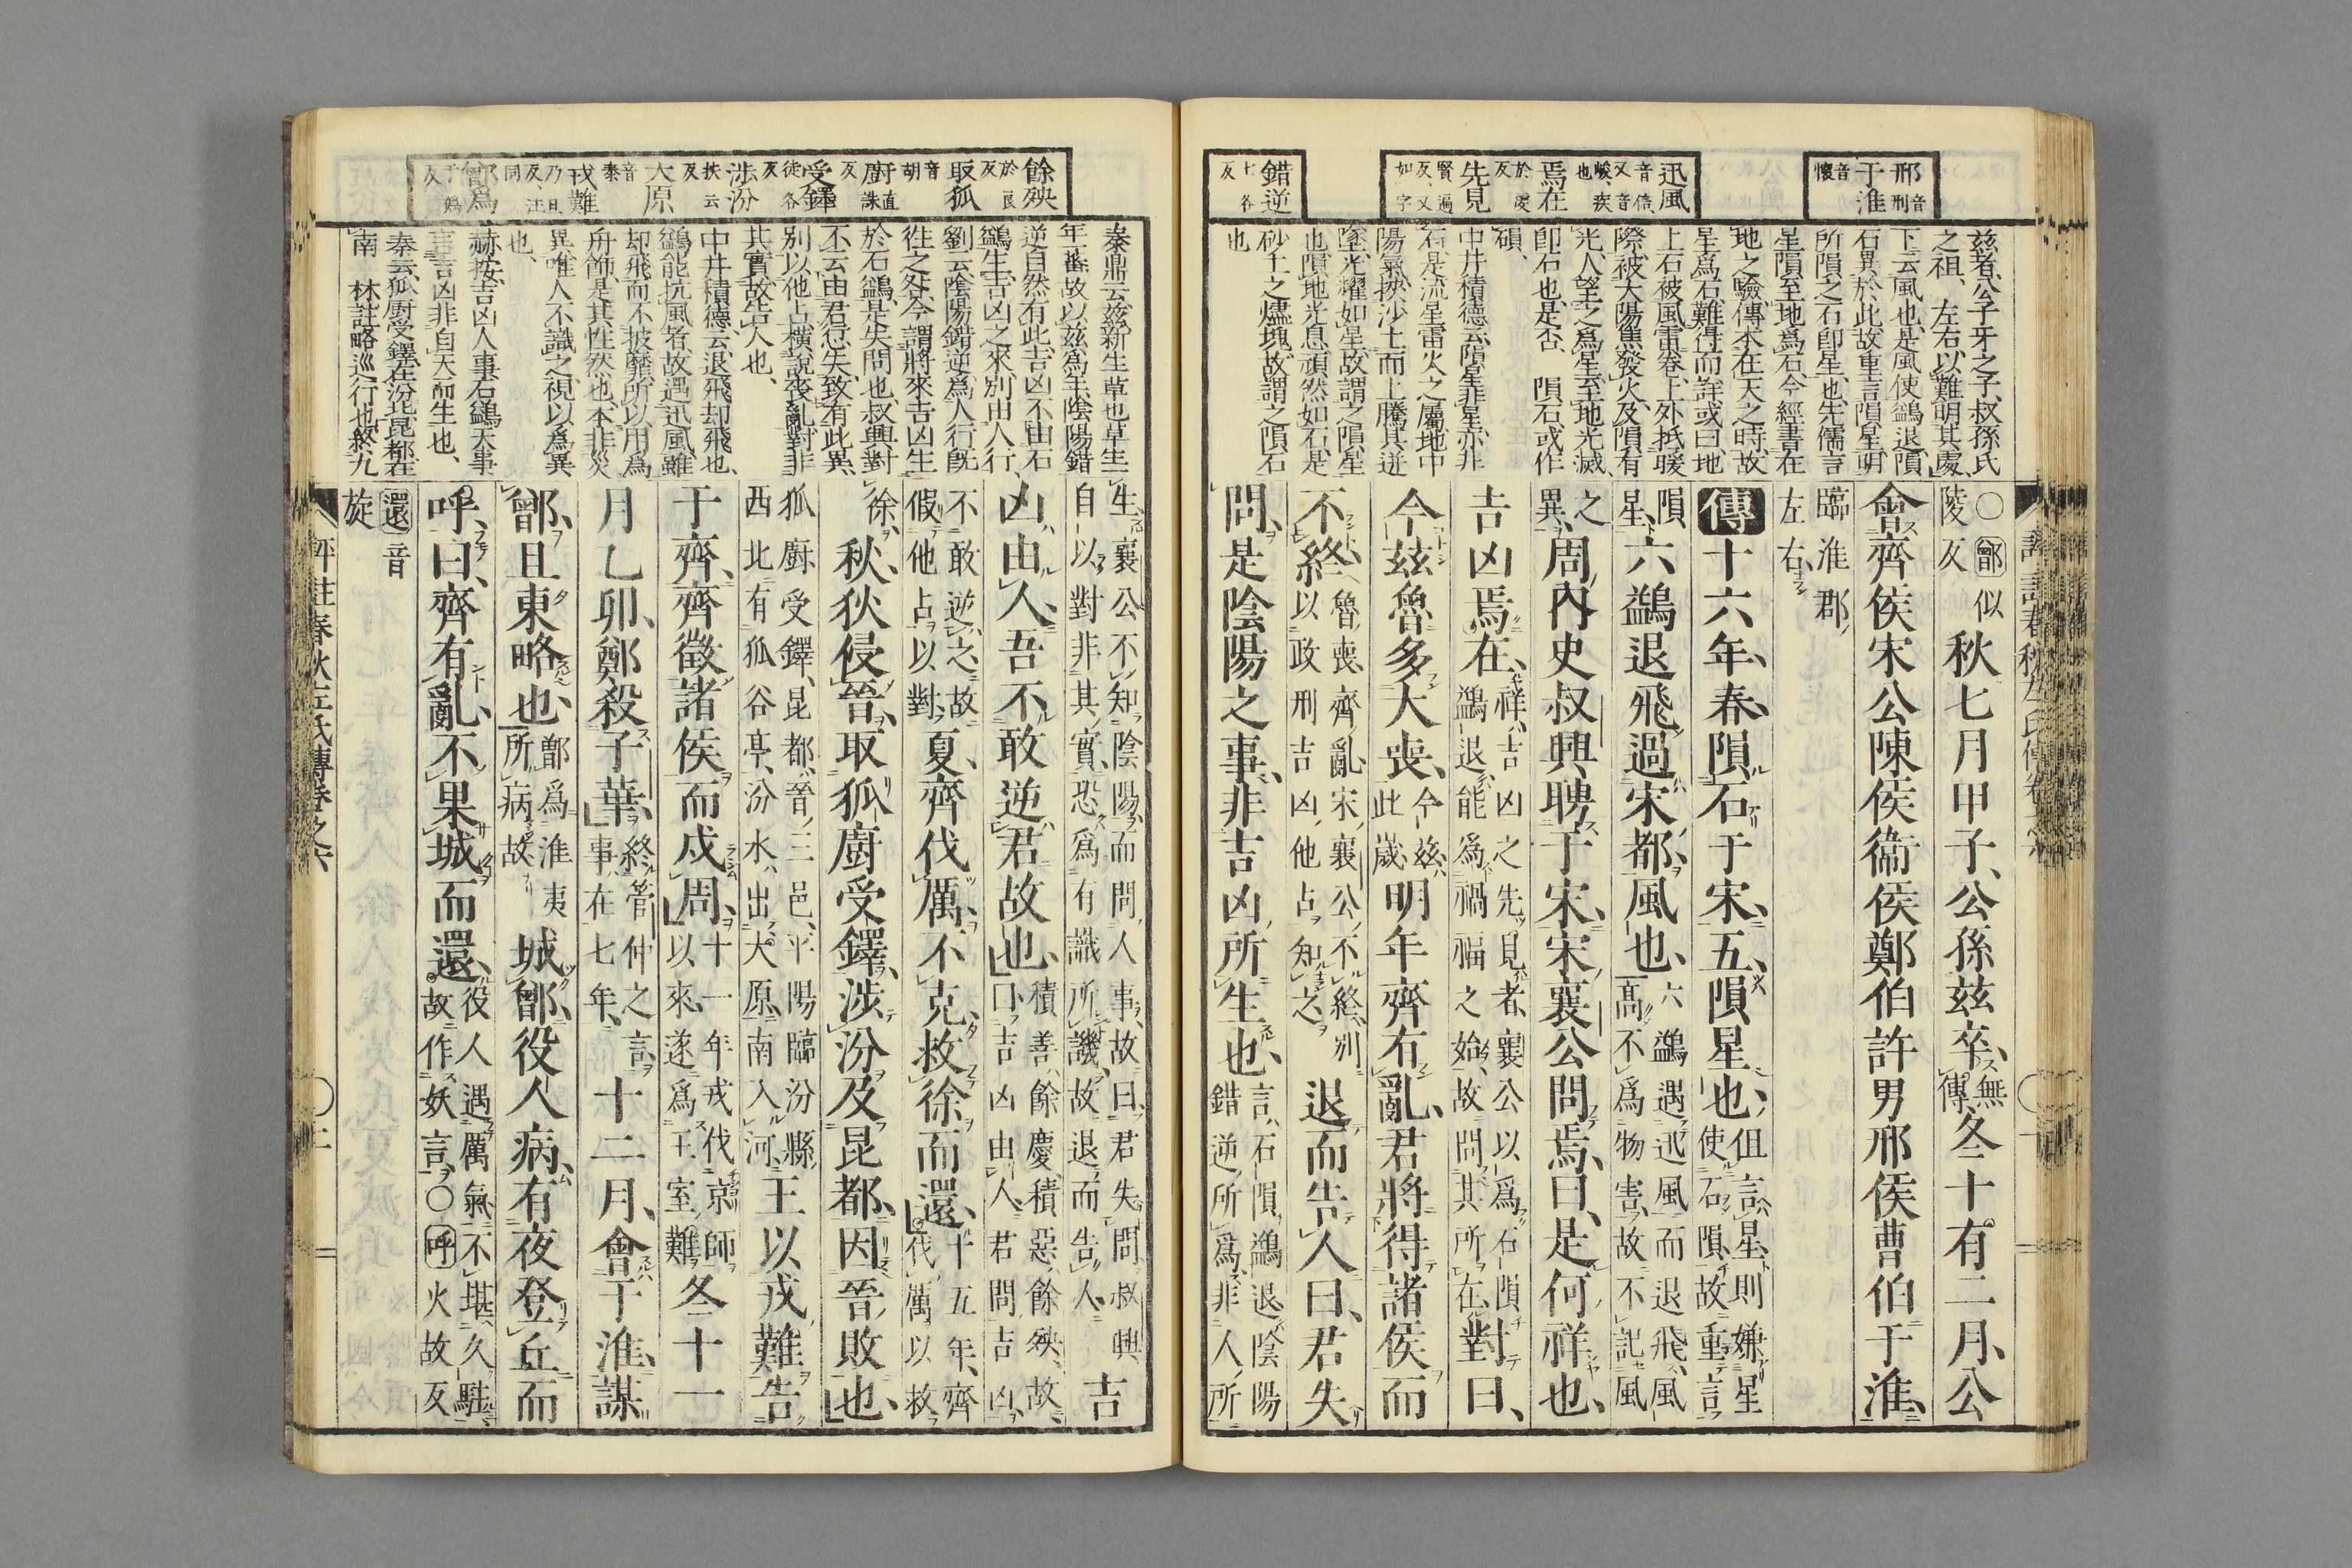 邢音刑
于淮音懷
迅風音信又音峻疾也
焉在於虔反
先見賢遍反又如字
錯逆七各反
茲者公子牙之子叔孫氏
之祖、左右以難明其處、
下云風也是風使鷁退隕
石異於此故重言隕星明
所隕之石卽星也先儒言
星隕至地爲石今經書在
地之驗傳本在天之時故
星爲石難得而詳或曰地
上石被風雷卷上外抵暖
際被大陽焦發火及隕有
光人望之爲星至地光滅
卽石也是否、隕石或作
磒、
中井積德云隕星非星亦非
石是流星雷火之屬地中
陽氣挾沙土而上騰其迸
墜光耀如星故謂之隕星
也隕地光息頑然如石是
砂土之爐塊故謂之隕石
也
○鄫似陵反秋七月甲子、公孫茲卒、無傳、冬十有二月、公
會齊侯宋公陳侯衞侯鄭伯許男邢侯曹伯于淮、
臨淮郡左右
傳十六年、春、隕石于宋、五、隕星也、但言星則嫌星使石隕故重言
隕星、六鷁退飛過宋都、風也、六鷁遇迅風而退飛、風高不爲物害、故不記風
之異、周內史叔興聘于宋、宋襄公問焉、曰、是何祥也、
吉凶焉在、祥吉凶之先見者、襄公以爲石隕鷁退、能爲禍福之始、故問其所在、對曰、
今茲魯多大喪、今茲此歲明年齊有亂、君將得諸侯而
不終、魯喪、齊亂、宋襄公不終、別以政刑吉凶他占知之、退而告人曰、君失
問、是陰陽之事、非吉凶所生也、言石隕鷁退陰陽錯逆所爲、非人所
餘殃於良反
取狐音胡
廚直誅反
受鐸徒各反
涉汾扶云反
大原音泰
戎難乃旦反注同
鄫爲于僞反
秦鼎云茲新生草也草生一
年一蕃故以茲爲年陰陽錯
逆自然有此吉凶不由石
鷁生吉凶之來別由人行、
劉云陰陽錯逆爲人行旣
往之咎今謂將來吉凶生
於石鷁是失問也叔興對
不云由君愆失致有此異
別以他占橫說喪亂對非
其實故告人也、
中井積德云退飛却飛也
鷁能抗風者故遇迅風雖
却飛而不披靡所以用爲
舟飾是其性然也本非災
異唯人不識之視以爲異
也、
赫按吉凶人事石鷁天事
言吉凶非自天而生也、
秦云狐廚受鐸在汾北昆都在
南 林註略巡行也終九
生襄公不知陰陽而問人事故曰君失問叔興
自以對非其實恐爲有識所譏故退而告人吉
凶由人、吾不敢逆君故也、積善餘慶積惡餘殃故曰吉凶由人君問吉凶、
不敢逆之故假他占以對夏、齊伐厲、不克、救徐而還、十五年、齊伐厲以救
徐、秋、狄侵晉、取狐廚受鐸、涉汾及昆都、因晉敗也、
狐廚受鐸昆都、晉三邑、平陽臨汾縣西北有狐谷亭、汾水、出大原、南入河、王以戎難告
于齊、齊徵諸侯而戍周、十一年戎伐京師以來、遂爲王室難冬十一
月乙卯、鄭殺子華、終管仲之言、事在七年、十二月、會于淮、謀
鄫、且東略也、鄫爲淮夷所病故城鄫、役人病、有夜登丘而
呼、曰、齊有亂、不果城而還、役人遇厲氣不堪久駐故作妖言、○呼火故反
還音旋
評註春秋左氏傳卷之六